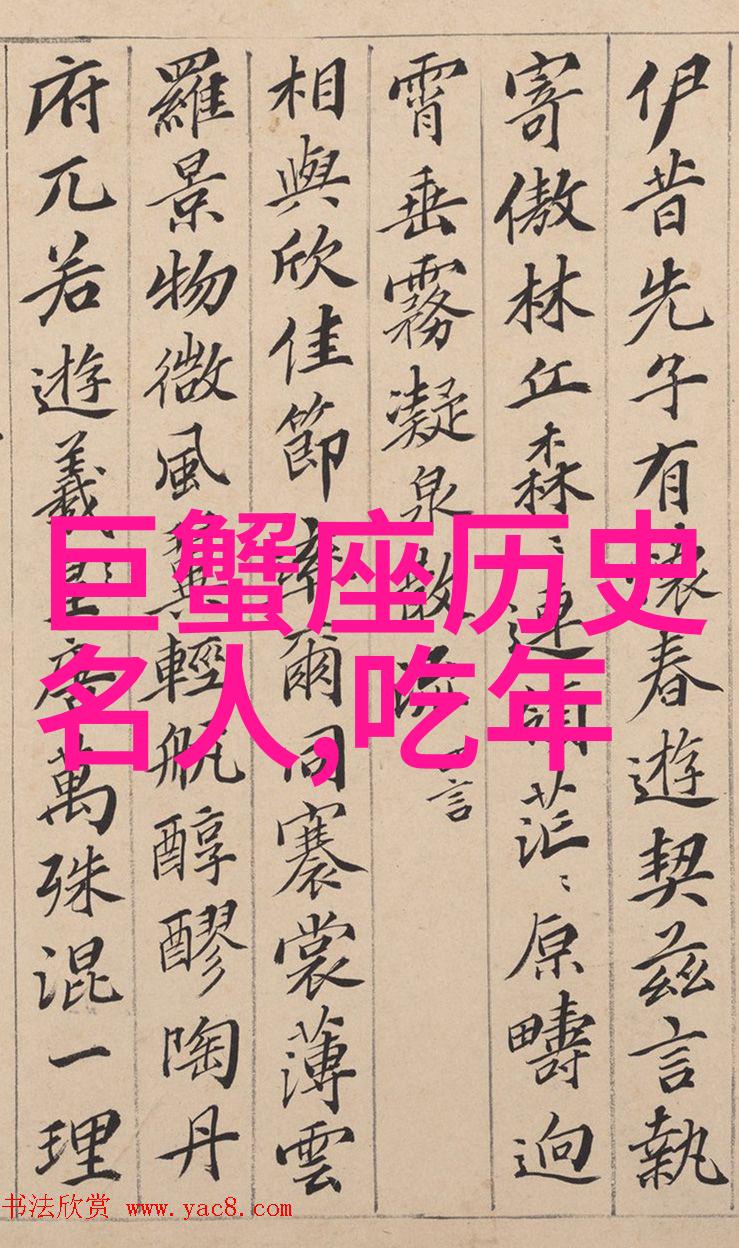 伊昔先子有懷春遊契茲言執
寄傲林丘森〻連嶺茫〻原疇迥
霄垂霧凝泉散流 言
相與欣佳節率爾同褰裳薄雲
羅景物微風翼輕航醇醪陶丹
府兀若遊羲唐萬殊混一理
巨蟹座历史
名人,吃年
书法欣赏 www.yac8.com